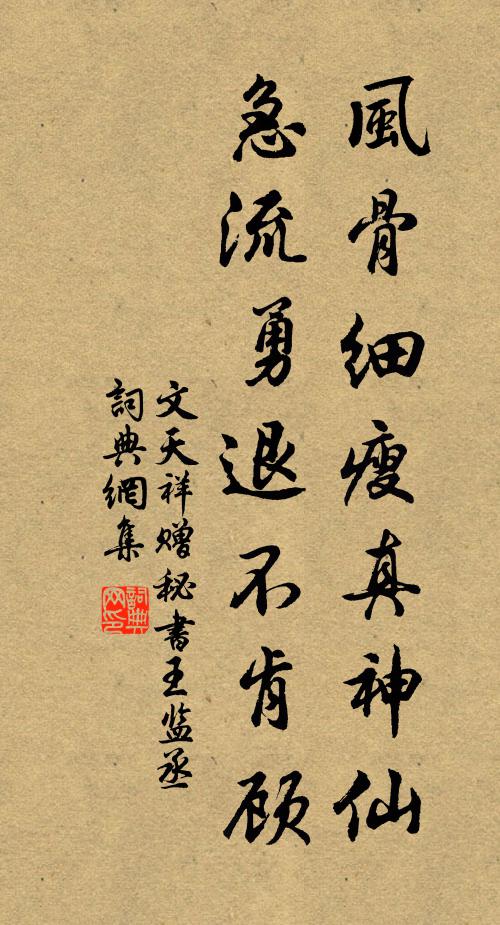 風骨細瘦真神仙
急流勇退不肯顾
文天祥赠秘書王监丞
詞典網集
詞典网印